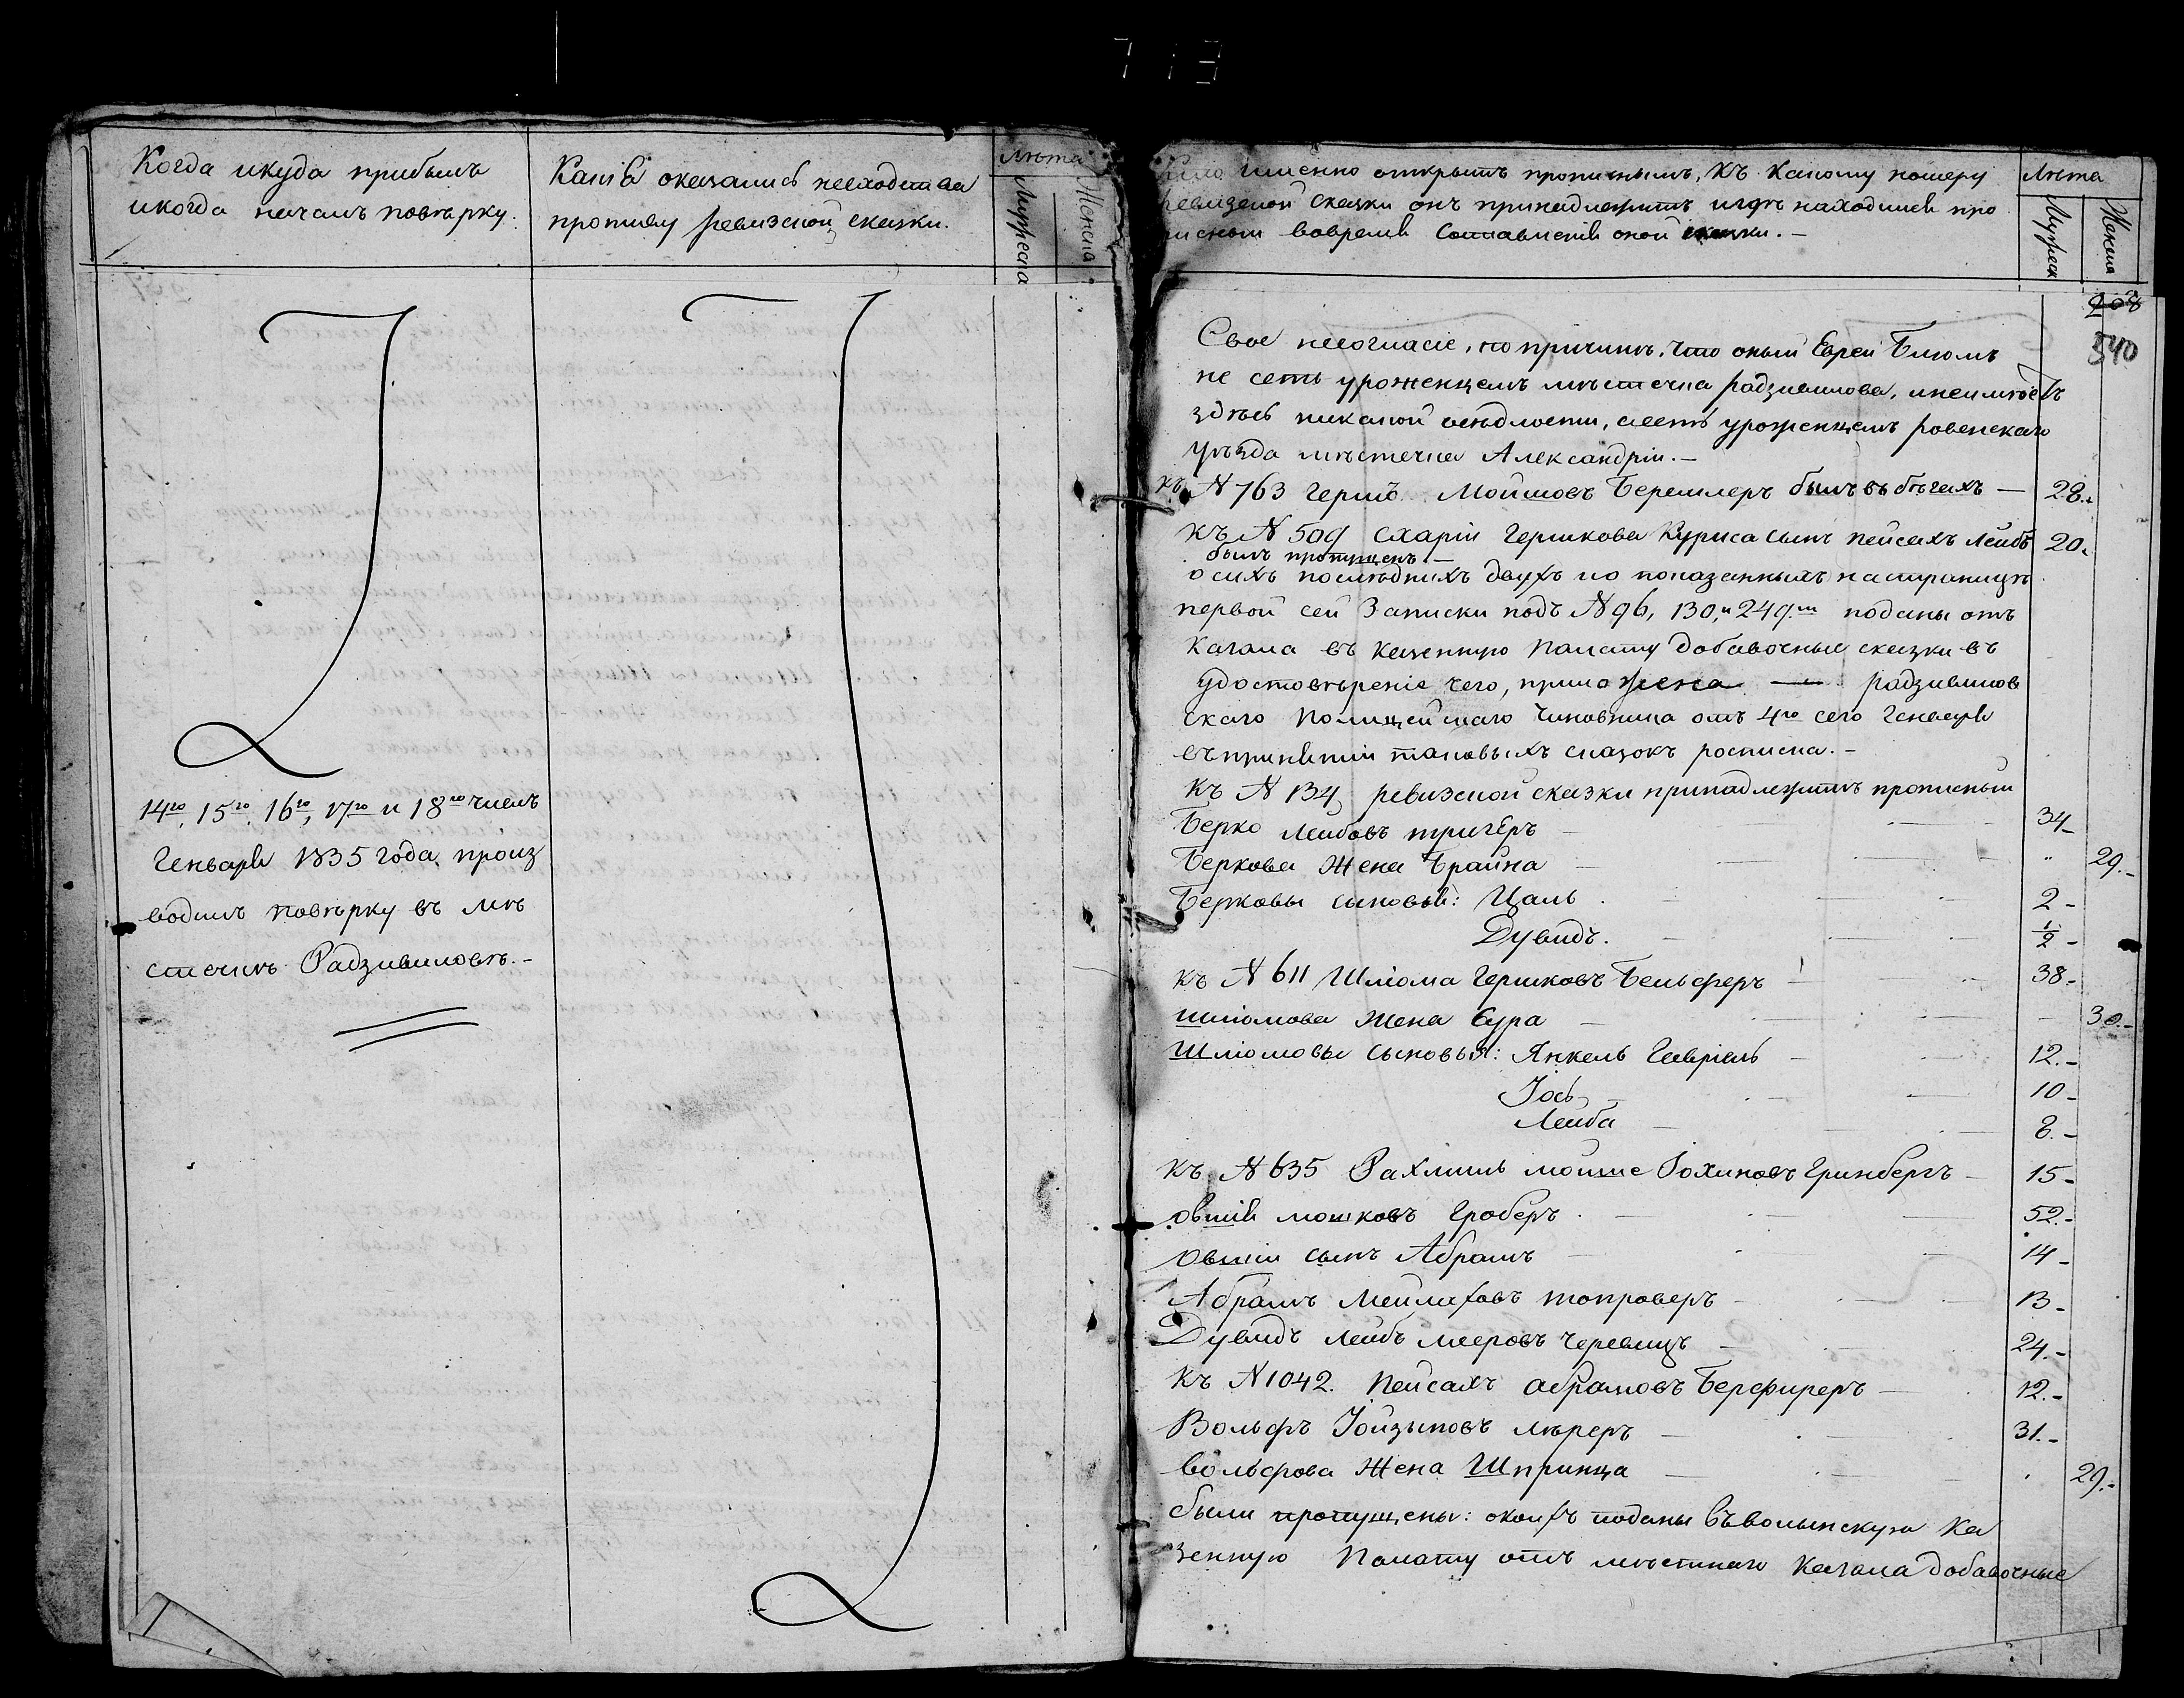 713
Когда и куда прибылъ
и когда началъ повѣрку.
Какія оказались несходства
противу ревизской сказки.
Лѣта
Мужеска
Женска
именно открытъ прописнымъ, къ какому номеру
ревизской сказки онъ принадлежитъ и гдѣ находился про
писной вовремя составленія оной сказки. —
Лѣта
Мужеск
Женска
540
Свое несогласіе, по причинѣ, что оный Еврей Блюмъ
не есть уроженцемъ мѣстечка радзивилова, и неимѣетъ
здѣсь никакой осѣдлости, а есть уроженцемъ ровенскаго
уѣзда мѣстечка Александріи. —
къ N 763 Гершъ Мошковъ Беремлеръ былъ въ бѣгахъ — 28.
Къ N 509 Схаріи Гершкова Куриса сынъ Пейсахъ Лейбъ 20.
былъ пропущенъ —
о сихъ послѣднихъ двухъ и о показанныхъ на страницѣ
первой сей Записки подъ N 96, 130, и 249.ᵐ поданы отъ
Кагала въ казенную Палату добавочные сказки въ
удостовѣреніе чего, приложена — радзивилов
скаго Полицейскаго Чиновника отъ 4го сего Генваря
въ принятіи таковыхъ сказокъ росписка. —
Къ N 134, ревизской сказки принадлежитъ прописный
Берко Лейбовъ тригеръ 34
Беркова Жена Брайна 29.
Берковы сыновья: Цаль 2
Дувидъ. 1/2
Къ N 611 Шліома Гершковъ Бельферъ 38
Шліомова Жена Сура 30.
Шліомовы сыновья: Янкель Гавріель 12.
Іось 10
Лейба 8.
Къ N 635 Рахмиль мошке Іохиновъ Гринбергъ 15
Овшія мошковъ Гроберъ 52.
Овшіи сынъ Абрамъ 14
Абрамъ Мейлаховъ топроверъ 13
Дувидъ Лейбъ Мееровъ Черевицъ 24.
Къ N 1042. Пейсахъ Абрамовъ Берфиреръ 12.
Вольфъ Іойзыповъ лѣреръ 31.
Вольфова Жена Шпринца 29.
были пропущены: о коихъ поданы въ волынскую Ка
зенную Палату отъ мѣстнаго Кагала добавочные
14го, 15го, 16го, 17го и 18го числъ
Генваря 1835 года, произ
водилъ повѣрку въ мѣ
стечкѣ Радзивиловѣ. —